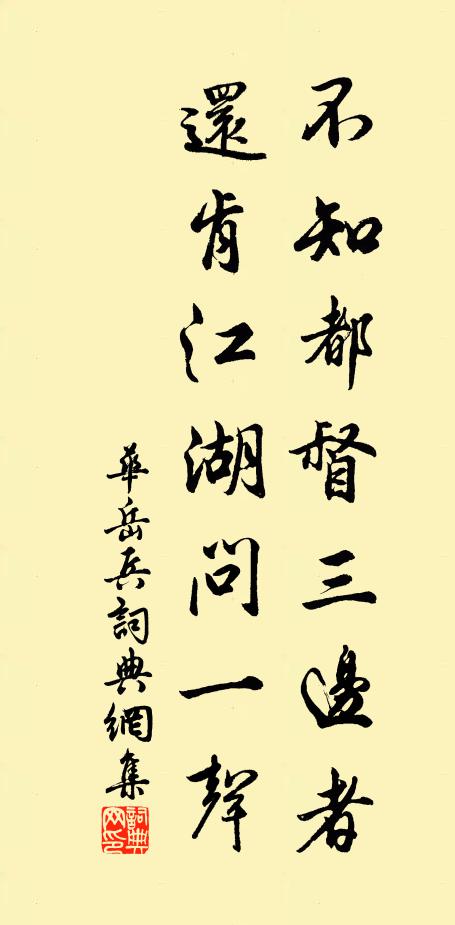 不知都督三邊者
還肯江湖問一聲
華岳兵詞典網集
詞典網印